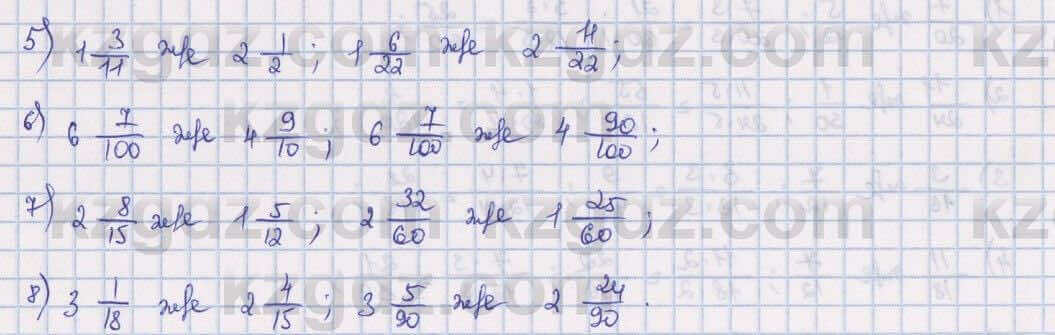 5) 1 3/11 және 2 1/2; 1 6/22 және 2 11/22;
6) 6 7/100 және 4 9/10; 6 7/100 және 4 90/100;
7) 2 8/15 және 1 5/12; 2 32/60 және 1 25/60;
8) 3 1/18 және 2 4/15; 3 5/90 және 2 24/90.